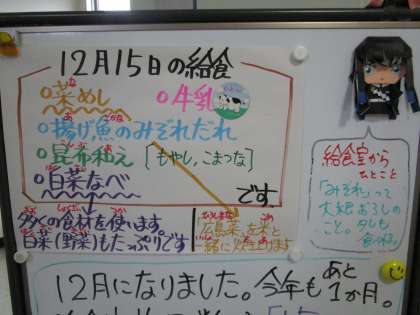 12月15日の給食
○菜めし ○牛乳
○揚げ魚のみぞれだれ
○昆布和え [もやし、こまつな]
○白菜なべ です。
多くの食材を使います。
白菜(野菜)もたっぷりです
広島菜を米と
一緒に炊き上げます
給食室から
ひとこと
「みぞれ」って
大根おろしの
こと。
12月になりました。今年もあと
1か月。